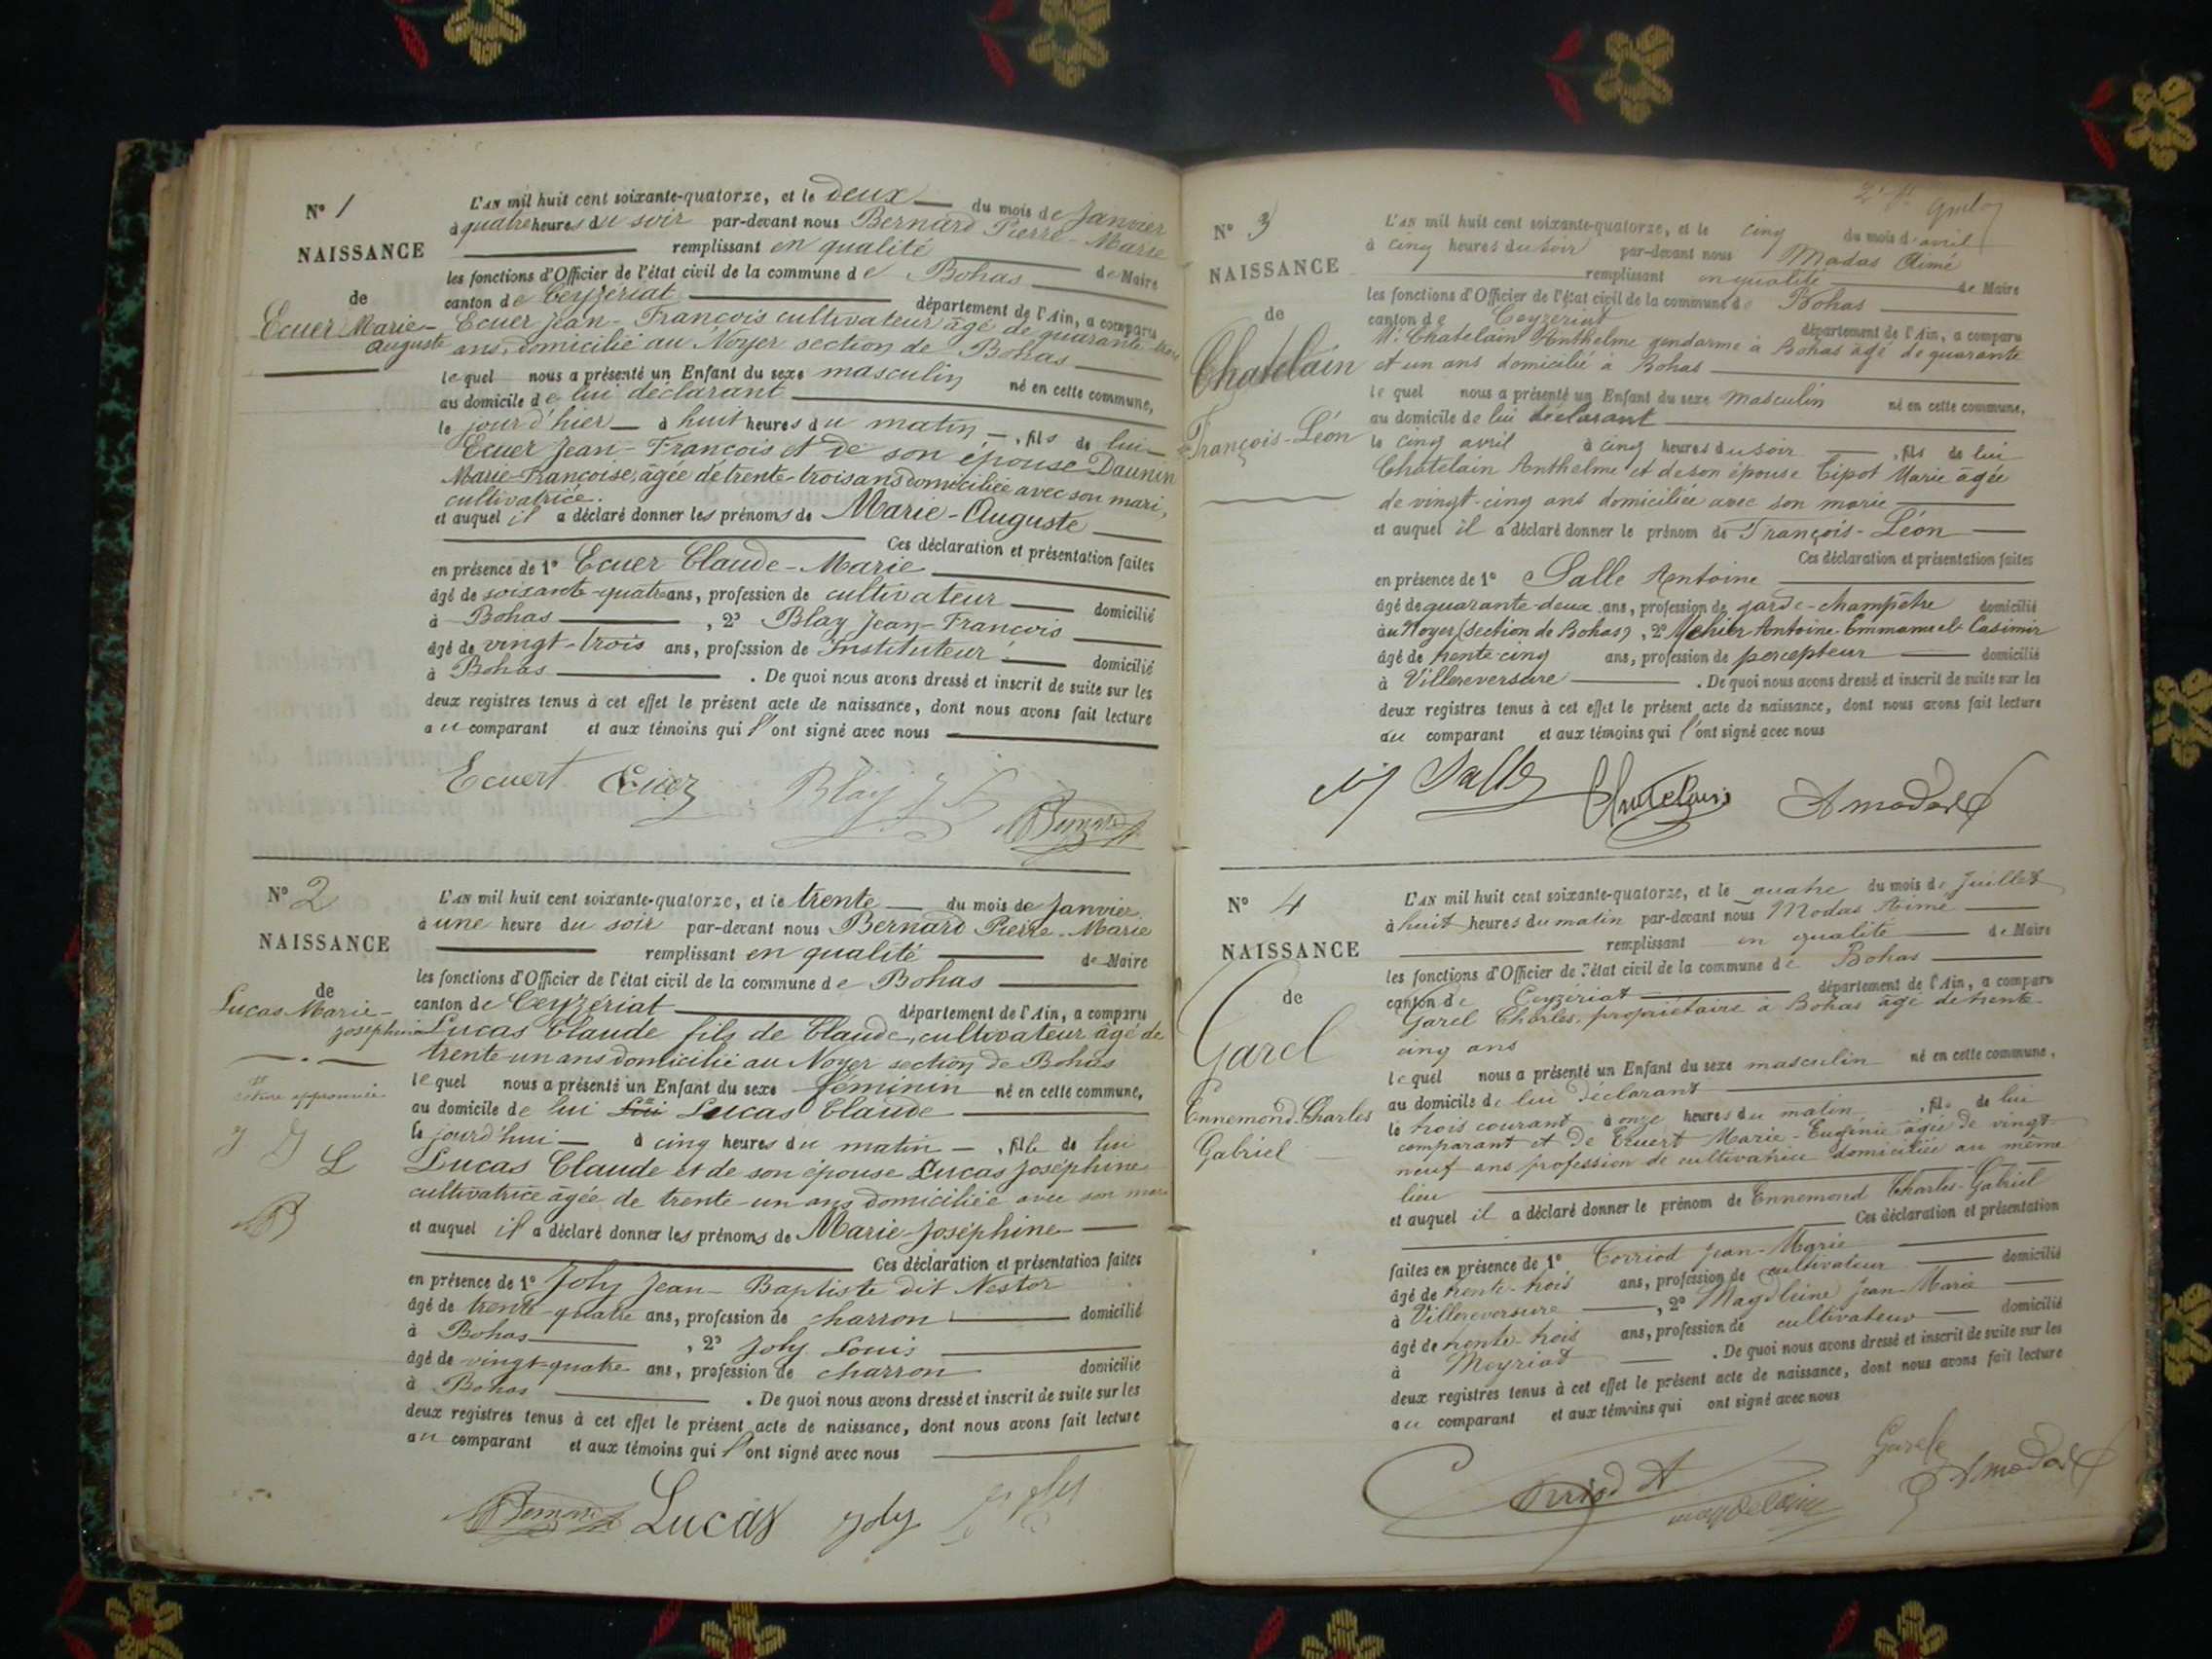 N° 1
NAISSANCE
de
Ecuer Marie-
Auguste
L'AN mil huit cent soixante-quatorze, et le deux du mois de Janvier
à quatre heures du soir par-devant nous Bernard Pierre-Marie
remplissant en qualité de Maire
les fonctions d'Officier de l'état civil de la commune de Bohas
canton de Ceyzériat département de l'Ain, a comparu
Ecuer Jean-François cultivateur âgé de quarante-trois
ans, domicilié au Noyer section de Bohas
lequel nous a présenté un Enfant du sexe masculin né en cette commune,
au domicile de lui déclarant
le jour d'hier à huit heures du matin, fils de lui
Ecuer Jean-François et de son épouse Daunin
Marie-Françoise, âgée de trente-trois ans domiciliée avec son mari,
cultivatrice.
et auquel il a déclaré donner les prénoms de Marie-Auguste
Ces déclaration et présentation faites
en présence de 1° Ecuer Claude-Marie
âgé de soixante-quatre ans, profession de cultivateur domicilié
à Bohas, 2° Blay Jean-François
âgé de vingt-trois ans, profession de Instituteur domicilié
à Bohas. De quoi nous avons dressé et inscrit de suite sur les
deux registres tenus à cet effet le présent acte de naissance, dont nous avons fait lecture
au comparant et aux témoins qui l'ont signé avec nous
Ecuert Ecuer Blay J F Bernard
N° 2
NAISSANCE
de
Lucas Marie-
Joséphine
rature approuvée
J J L
B
L'AN mil huit cent soixante-quatorze, et le trente du mois de Janvier
à une heure du soir par-devant nous Bernard Pierre-Marie
remplissant en qualité de Maire
les fonctions d'Officier de l'état civil de la commune de Bohas
canton de Ceyzériat département de l'Ain, a comparu
Lucas Claude fils de Claude, cultivateur âgé de
trente-un ans domicilié au Noyer section de Bohas
lequel nous a présenté un Enfant du sexe féminin né en cette commune,
au domicile de lui Lucas Claude
le jourd'hui à cinq heures du matin, fille de lui
Lucas Claude et de son épouse Lucas Joséphine
cultivatrice âgée de trente-un ans domiciliée avec son mari
et auquel il a déclaré donner les prénoms de Marie-Joséphine
Ces déclaration et présentation faites
en présence de 1° Joly Jean-Baptiste dit Nestor
âgé de trente-quatre ans, profession de charron domicilié
à Bohas, 2° Joly Louis
âgé de vingt-quatre ans, profession de charron domicilié
à Bohas. De quoi nous avons dressé et inscrit de suite sur les
deux registres tenus à cet effet le présent acte de naissance, dont nous avons fait lecture
au comparant et aux témoins qui l'ont signé avec nous
Bernard Lucas Joly
N° 3
NAISSANCE
de
Chatelain
François-Léon
L'AN mil huit cent soixante-quatorze, et le cinq du mois d'avril
à cinq heures du soir par-devant nous Modas Aimé
remplissant en qualité de Maire
les fonctions d'Officier de l'état civil de la commune de Bohas
canton de Ceyzériat département de l'Ain, a comparu
Mr Chatelain Anthelme gendarme à Bohas âgé de quarante
et un ans domicilié à Bohas
lequel nous a présenté un Enfant du sexe masculin né en cette commune,
au domicile de lui déclarant
le cinq avril à cinq heures du soir, fils de lui
Chatelain Anthelme et de son épouse Cipot Marie âgée
de vingt-cinq ans domiciliée avec son marie
et auquel il a déclaré donner le prénom de François-Léon
Ces déclaration et présentation faites
en présence de 1° Salle Antoine
âgé de quarante-deux ans, profession de garde-champêtre domicilié
au Noyer (section de Bohas), 2° Antoine-Emmanuel Casimir
âgé de trente cinq ans, profession de percepteur domicilié
à Villereversure. De quoi nous avons dressé et inscrit de suite sur les
deux registres tenus à cet effet le présent acte de naissance, dont nous avons fait lecture
au comparant et aux témoins qui l'ont signé avec nous
Salle Chatelain Amodas
N° 4
NAISSANCE
de
Garel
Ennemond-Charles
Gabriel
L'AN mil huit cent soixante-quatorze, et le quatre du mois de Juillet
à huit heures du matin par-devant nous Modas Aimé
remplissant en qualité de Maire
les fonctions d'Officier de l'état civil de la commune de Bohas
canton de Ceyzériat département de l'Ain, a comparu
Garel Charles, propriétaire à Bohas âgé de trente
cinq ans
lequel nous a présenté un Enfant du sexe masculin né en cette commune,
au domicile de lui déclarant
le trois courant à onze heures du matin, fils de lui
comparant et de Ecuert Marie-Eugénie âgée de vingt
neuf ans profession de cultivatrice domiciliée au même
lieu
et auquel il a déclaré donner le prénom de Ennemond Charles-Gabriel
Ces déclaration et présentation
faites en présence de 1° Corriod Jean-Marie
âgé de trente-trois ans, profession de cultivateur domicilié
à Villereversure, 2° Magdeleine Jean-Marie
âgé de trente-trois ans, profession de cultivateur domicilié
à Meyriat. De quoi nous avons dressé et inscrit de suite sur les
deux registres tenus à cet effet le présent acte de naissance, dont nous avons fait lecture
au comparant et aux témoins qui ont signé avec nous
Corriod Garel Amodas